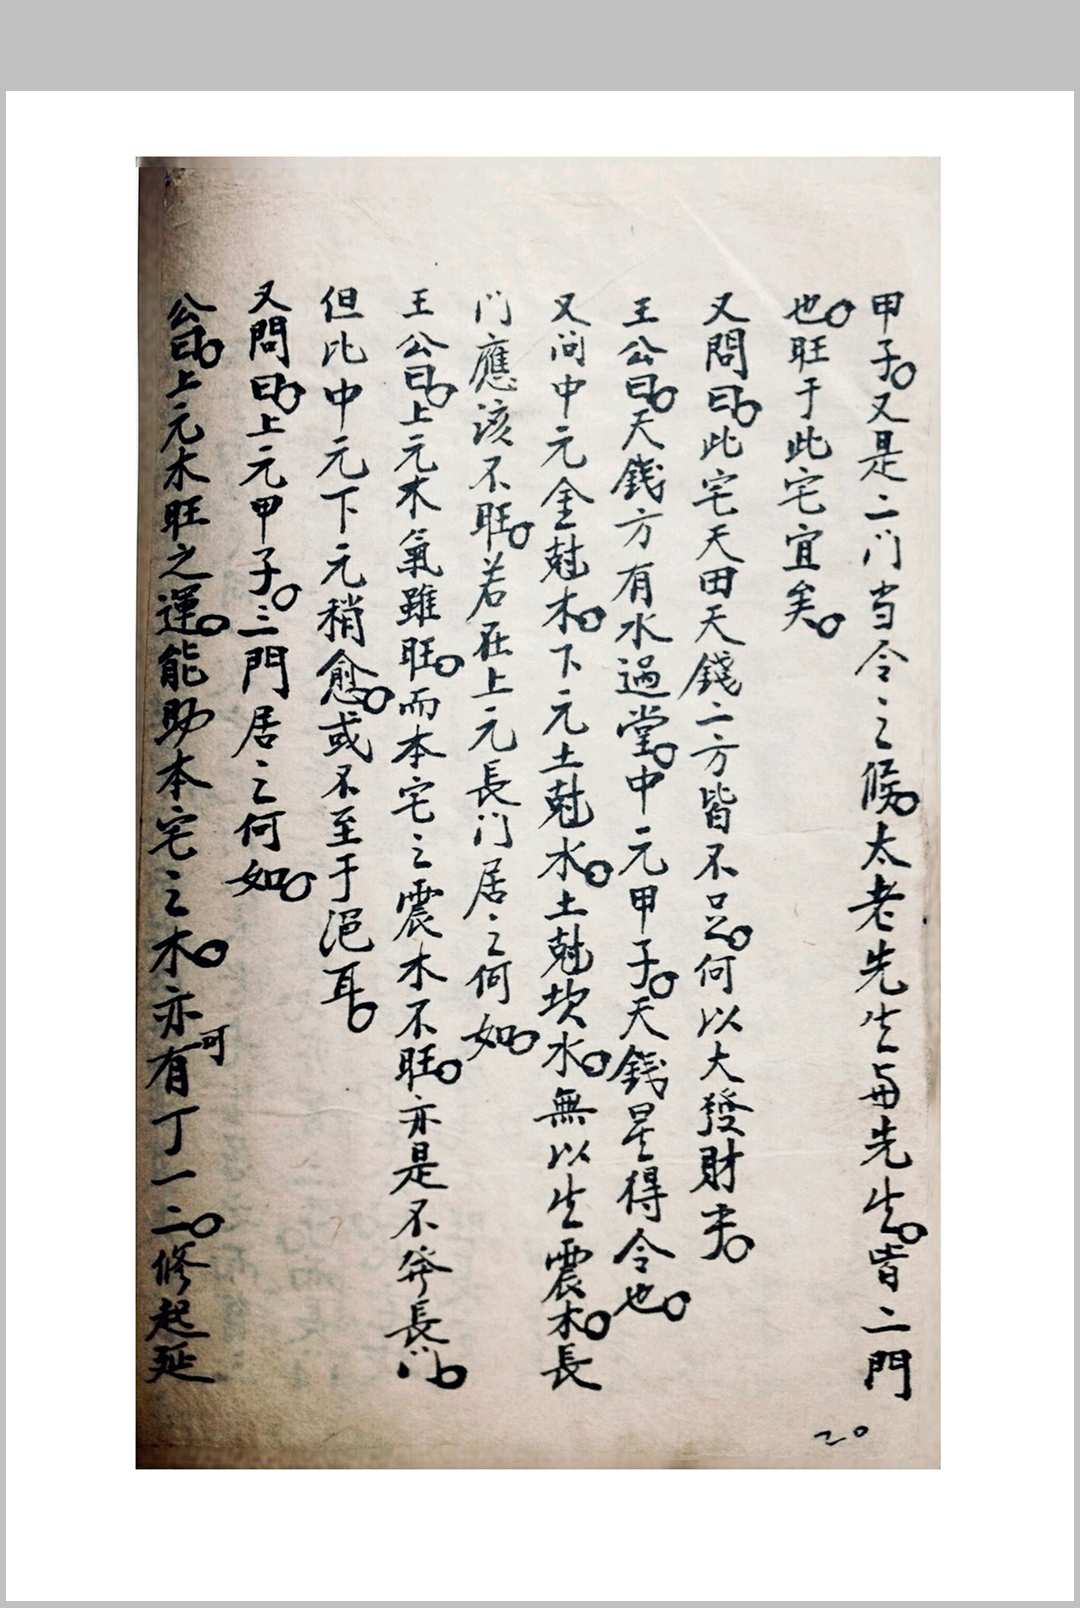 甲子。又是二门当令之候。太老先生与先生。皆二門
也。旺于此宅宜矣。
又問曰。此宅天田天錢二方皆不足。何以大發財来。
王公曰。天錢方有水過堂。中元甲子。天錢星得令也。
又问中元金尅木。下元土尅水。土尅坎水。無以生震木。長
门應该不旺。若在上元長门居之何如。
王公曰。上元木氣雖旺。而本宅之震木不旺。亦是不發長门。
但比中元下元稍愈。或不至于绝耳。
又問曰。上元甲子。三門居之何如。
公曰。上元木旺之運。能助本宅之木。亦可有丁一二。修起延
20